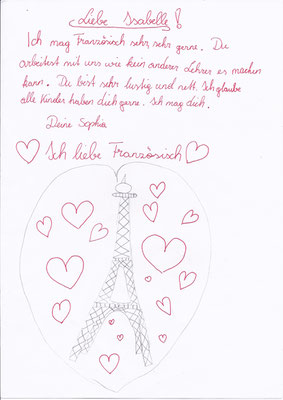 Liebe Isabelle!
Ich mag Französisch sehr, sehr gerne. Du
arbeitest mit uns wie kein anderer Lehrer es machen
kann. Du bist sehr lustig und nett. Ich glaube
alle Kinder haben dich gerne. Ich mag dich.
Deine Sophia
Ich liebe Französisch